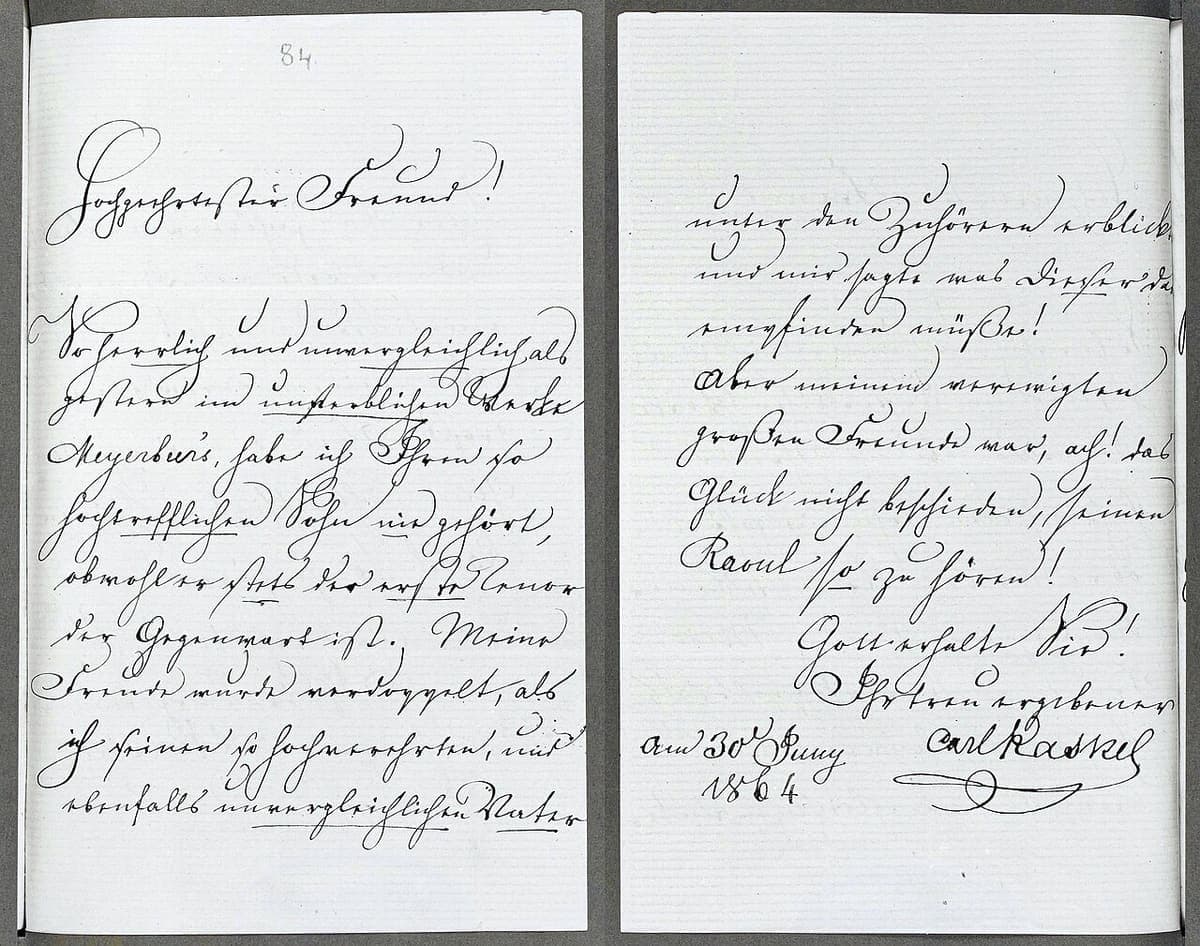 84
Hochgeehrtester Freund!
So herrlich und unvergleichlich als
gestern im unsterblichen Werke
Meyerbeer's, habe ich Ihren so
hochtrefflichen Sohn nie gehört,
obwohl er stets der erste Tenor
der Gegenwart ist. Meine
Freude wurde verdoppelt, als
ich seinen so hochverehrten, und
ebenfalls unvergleichlichen Vater
unter den Zuhörern erblick
und mir sagte was Dieser da
empfinden müße!
Aber meinem verewigten
großen Freunde war, ach! das
Glück nicht beschieden, seinen
Raoul so zu hören!
Gott erhalte Sie!
Ihr treu ergebener
Carl Kaskel
am 30 Juny
1864